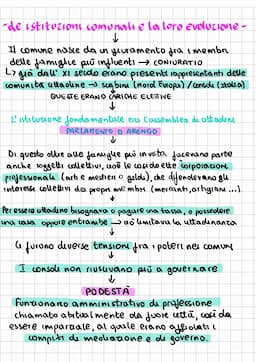 -le istituzioni comunali e la loro evoluzione-
Il comune nasce da un giuramento fra i membri
delle famiglie più influenti → CONIURATIO
↳ già dall' XI secolo erano presenti rappresentanti delle
comunità cittadine → scabini (nord Europa) / consoli (italia)
QUESTE ERANO CARICHE ELETTIVE
L'istituzione fondamentale era l'assemblea di cittadini
PARLAMENTO O ARENGO
Di questo oltre alle famiglie più in vista facevano parte
anche soggetti collettivi, cioè le cosiddette corporazioni
professionali (arti e mestieri o gilde), che difendevano gli
interessi collettivi dei propri membri (mercanti, artigiani ...)
Per essere cittadino bisognava o pagare una tassa, o possedere
una casa oppure entrambe → ciò limitava la cittadinanza
Ci furono diverse tensioni fra i poteri nei comuni
I consoli non riuscivano più a governare
PODESTÀ
Funzionario amministrativo di professione
chiamato abitualmente da fuori città, così da
essere imparziale, al quale erano affidati i
compiti di mediazione e di governo.